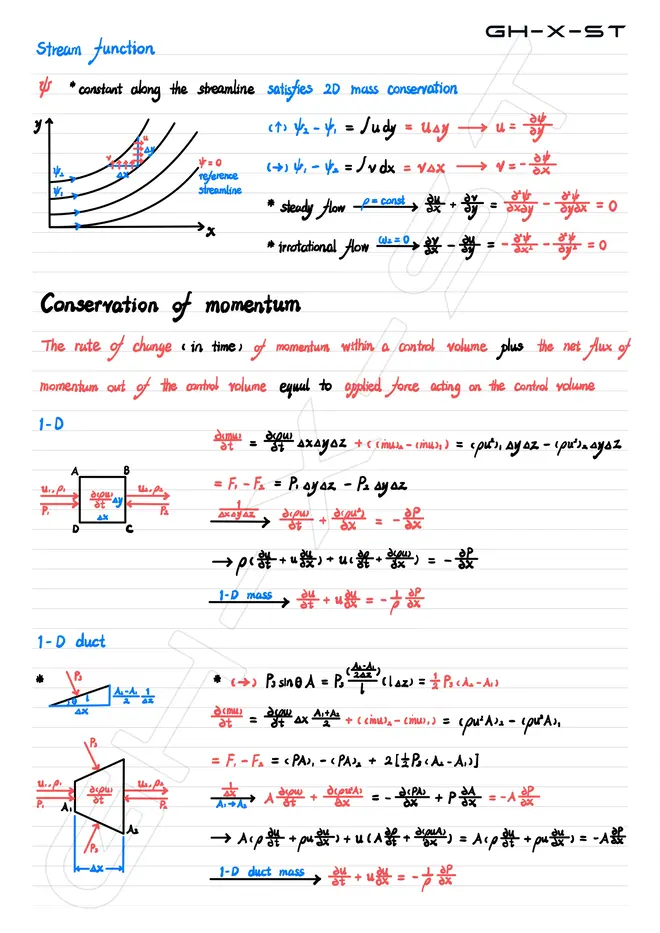 GH-X-ST
Stream function
ψ * constant along the streamline satisfies 2D mass conservation
y
ψ₂
ψ₁
v u Δy
Δx
ψ=0
reference
streamline
x
(↑) ψ₂ - ψ₁ = ∫udy = uΔy → u = ∂ψ/∂y
(→) ψ₁ - ψ₂ = ∫vdx = vΔx → v = -∂ψ/∂x
* steady flow ρ=const → ∂u/∂x + ∂v/∂y = ∂²ψ/∂x∂y - ∂²ψ/∂y∂x = 0
* irrotational flow ω₂=0 → ∂v/∂x - ∂u/∂y = -∂²ψ/∂x² - ∂²ψ/∂y² = 0
Conservation of momentum
The rate of change (in time) of momentum within a control volume plus the net flux of
momentum out of the control volume equal to applied force acting on the control volume
1-D
A B
u₁,ρ₁ ∂(ρu)/∂t Δy u₂,ρ₂
P₁ Δx P₂
D C
∂(mu)/∂t = ∂(ρu)/∂t ΔxΔyΔz + ((ṁu)₂ - (ṁu)₁) = (ρu²)₁ΔyΔz - (ρu²)₂ΔyΔz
= F₁ - F₂ = P₁ΔyΔz - P₂ΔyΔz
1/ΔxΔyΔz → ∂(ρu)/∂t + ∂(ρu²)/∂x = -∂P/∂x
→ ρ(∂u/∂t + u∂u/∂x) + u(∂ρ/∂t + ∂(ρu)/∂x) = -∂P/∂x
1-D mass → ∂u/∂t + u∂u/∂x = -1/ρ ∂P/∂x
1-D duct
* P₃ θ l A₂-A₁/2 1/Δz
Δx
* (→) P₃sinθA = P₃ (A₂-A₁/2Δz)/l (lΔz) = 1/2 P₃(A₂-A₁)
∂(mu)/∂t = ∂(ρu)/∂t Δx A₁+A₂/2 + ((ṁu)₂ - (ṁu)₁) = (ρu²A)₂ - (ρu²A)₁
P₃
u₁,ρ₁ ∂(ρu)/∂t u₂,ρ₂
P₁ P₂
A₁ A₂
P₃
Δx
= F₁ - F₂ = (PA)₁ - (PA)₂ + 2[1/2P₃(A₂-A₁)]
1/Δx A₁→A₂ → A∂(ρu)/∂t + ∂(ρu²A)/∂x = -∂(PA)/∂x + P∂A/∂x = -A∂P/∂x
→ A(ρ∂u/∂t + ρu∂u/∂x) + u(A∂ρ/∂t + ∂(ρuA)/∂x) = A(ρ∂u/∂t + ρu∂u/∂x) = -A∂P/∂x
1-D duct mass → ∂u/∂t + u∂u/∂x = -1/ρ ∂P/∂x
GH-X-ST